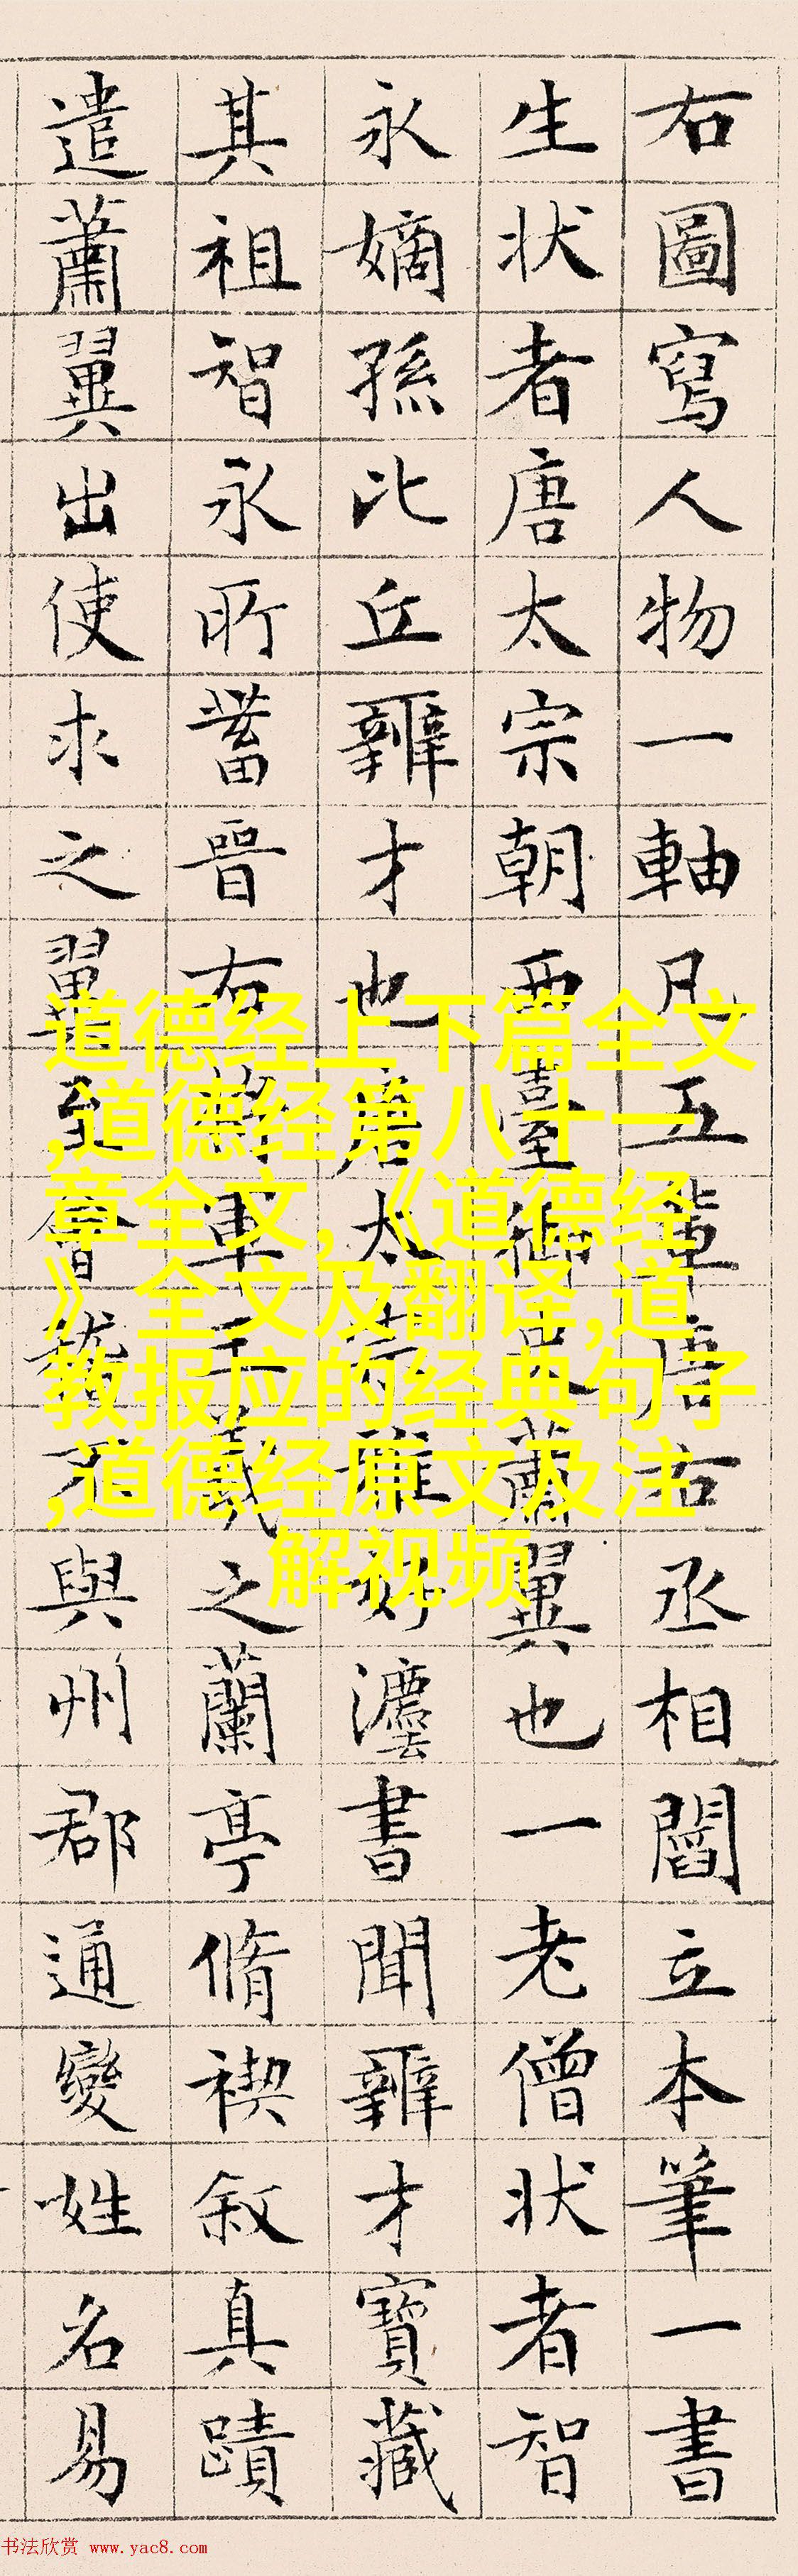 右圖寫人物一軸凡五輩唐右丞相閻立本筆一書
生状者唐太宗朝西臺御史蕭翼也一老僧状者智
永嫡孫比丘辯才也唐太宗雅好灋書聞辯才寶藏
其祖智永所蓄晉右將軍王羲之蘭亭脩禊敘真蹟
遣蕭翼出使求之翼至會稽不與州郡通變姓名易
道德经上下篇全文
,道德经第八十一
章全文,《道德经
》全文及翻译,道
教报应的经典句子
,道德经原文及注
解视频
书法欣赏 www.yac8.com